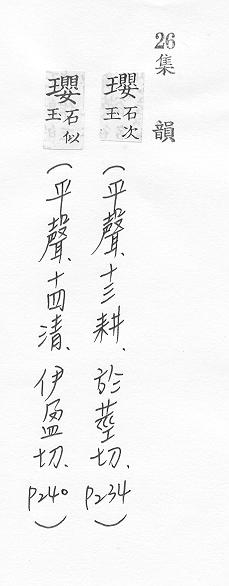 26集韻
瓔石次玉(平聲、十三耕、於莖切、P234)
瓔石似玉(平聲、十四清、伊盈切、P240)